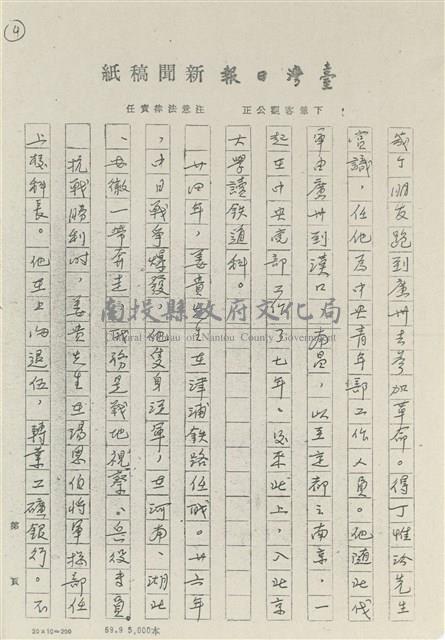 (4)
臺灣日報新聞稿紙
下筆客觀公正　注意法律責任
幾个朋友跑到廣州去參加革命。得丁惟汾先生
賞識，任他為中央青年部工作人員。他隨北伐
軍由廣州到漢口、南昌，以至定都之南京，一
起在中央党部工作了七年。後來北上，入北京
大學讀鉄道科。
廿四年，姜貴先生在津浦鉄路任職。廿六年
，中日戰爭爆發，他隻身從軍，在河南、湖北
、安徽一帶奔走，職務是戰地視察、兵役専員。
抗戰勝利時，姜貴先生在湯恩伯將軍總部任
上校科長。他在上海退伍，轉業工礦銀行。不
南投縣政府文化局
Cultural Bureau of Nantou County Government
第　頁
20×10=200
69.9 5,000本